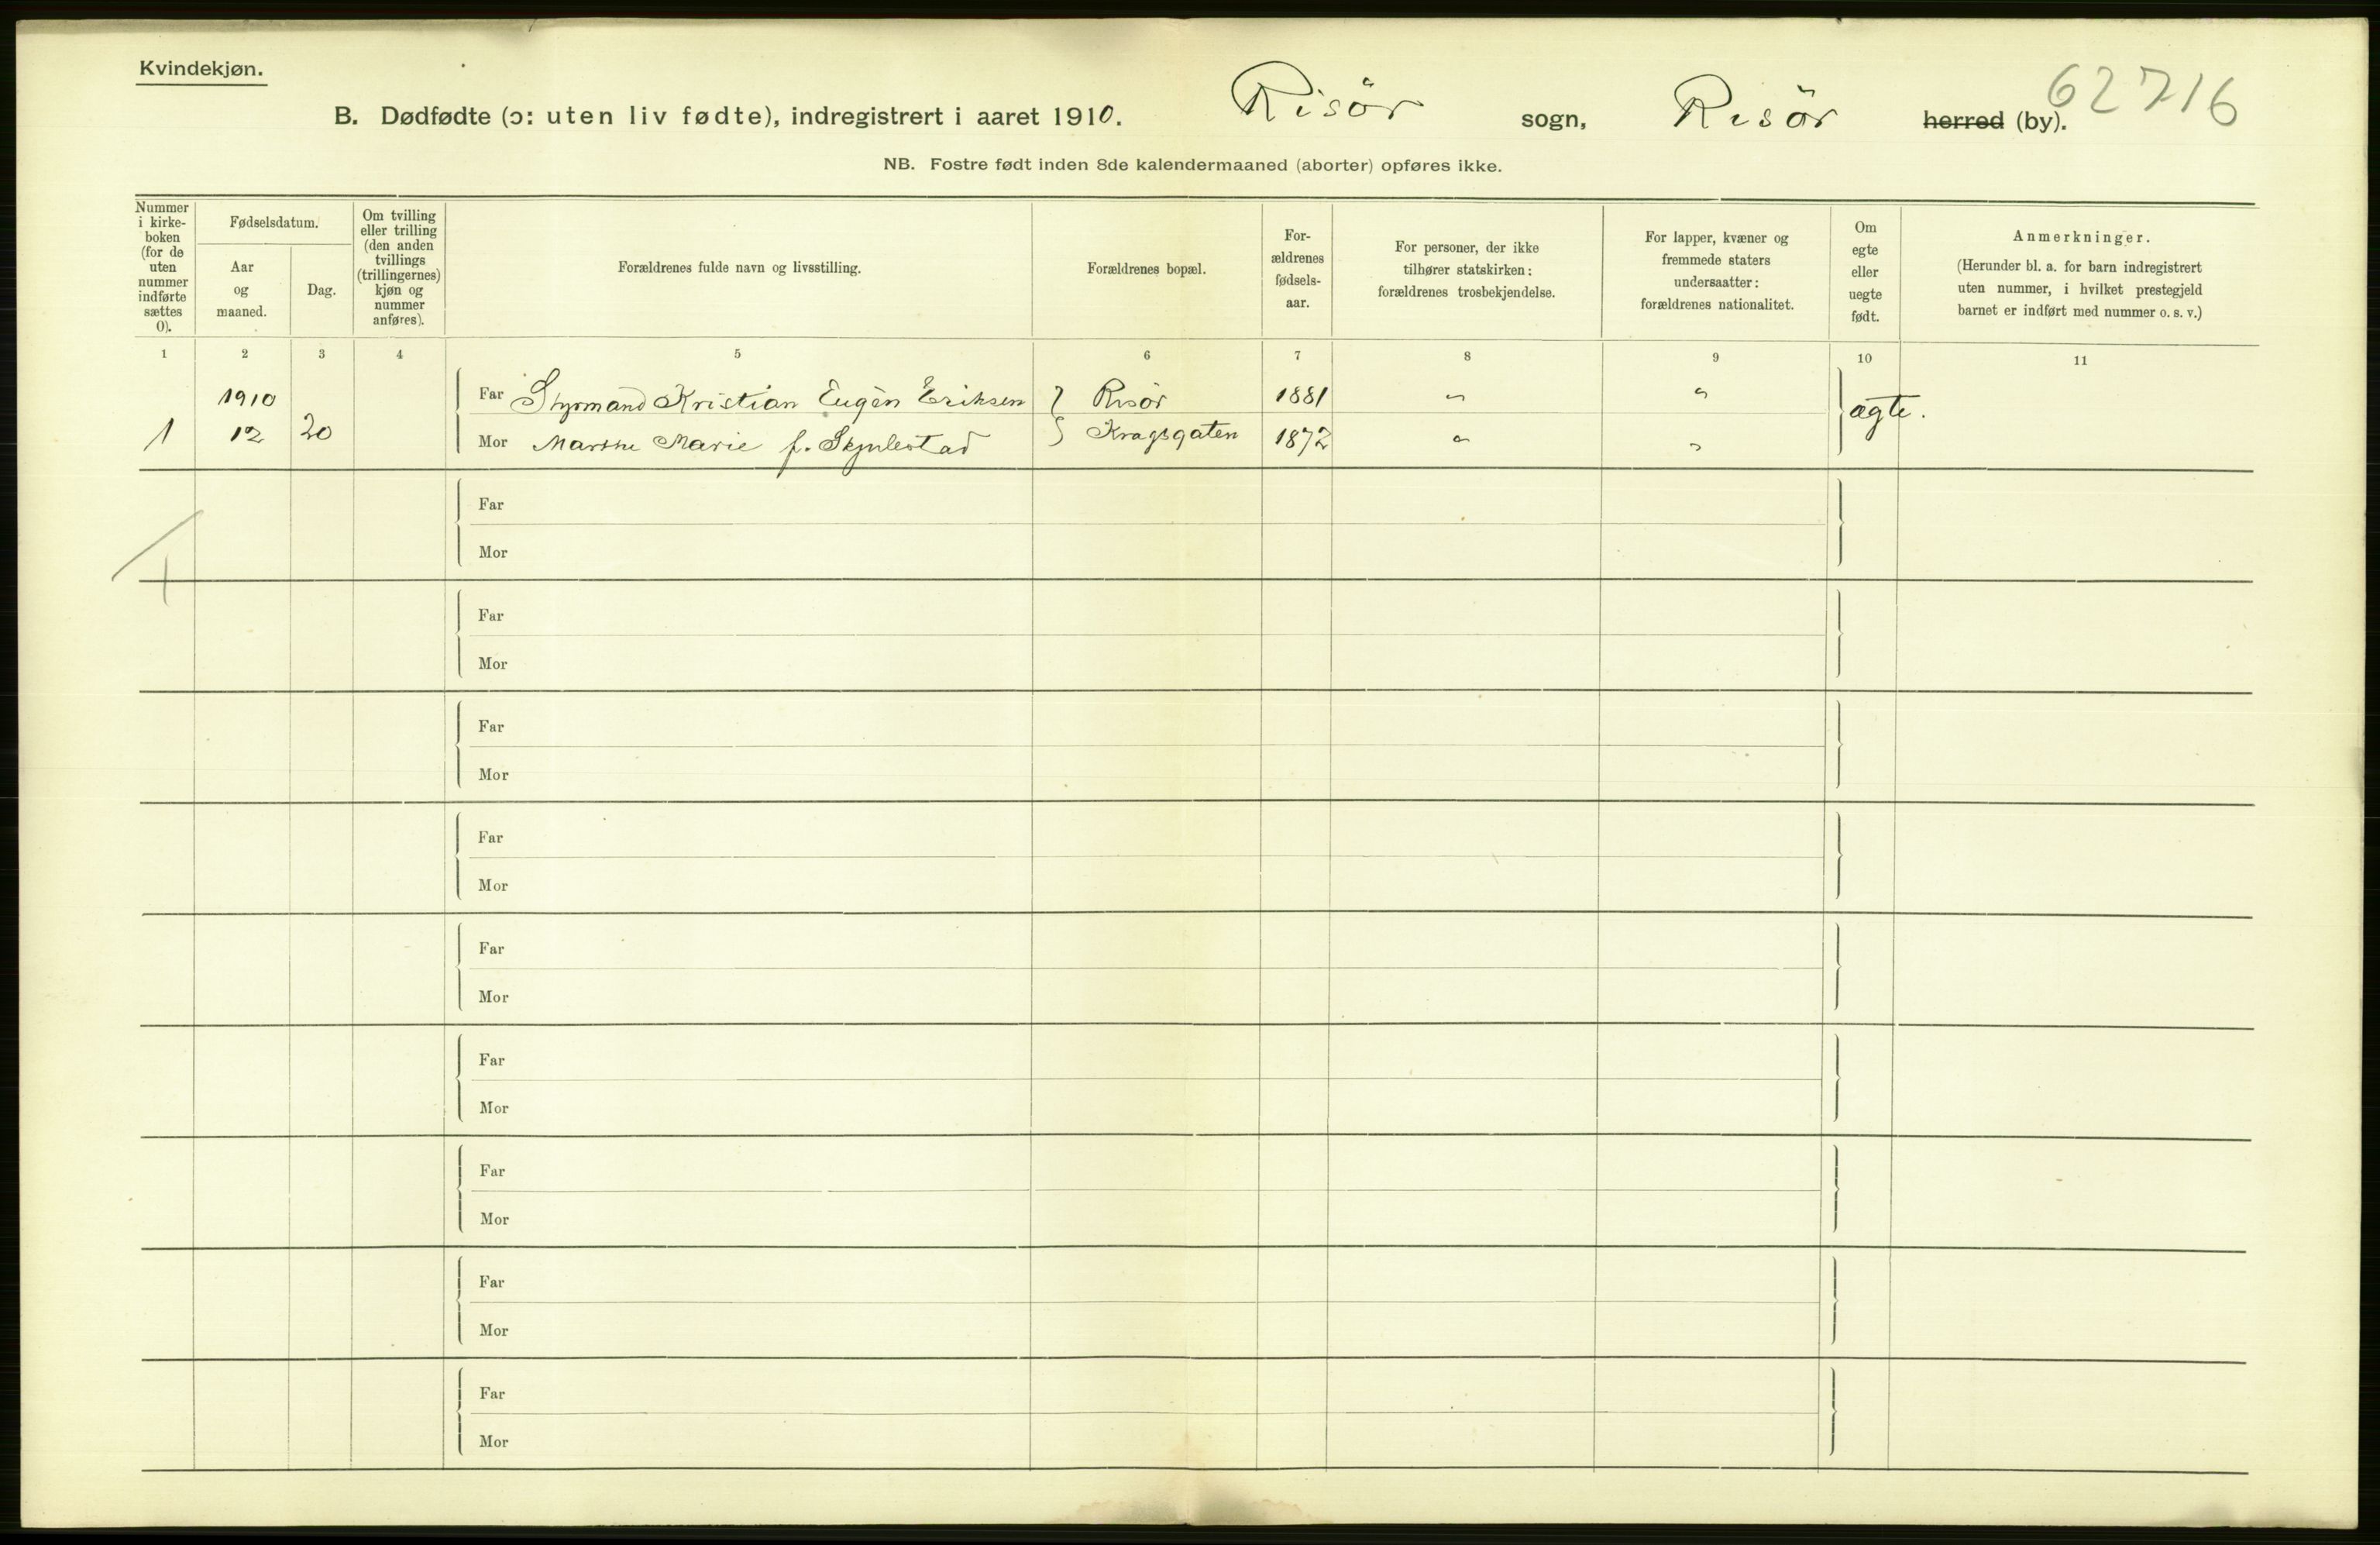 Kvindekjøn.
62716
B. Dødfødte (ɔ: uten liv fødte), indregistrert i aaret 1910. Risör sogn, Risör herred (by).
NB. Fostre født inden 8de kalendermaaned (aborter) opføres ikke.
Nummer i kirke-
boken
(for de
uten
nummer
indførte
sættes
0).
Fødselsdatum.
Aar
og
maaned.
Dag.
Om tvilling
eller trilling
(den anden
tvillings
(trillingernes)
kjøn og
nummer
anføres).
Forældrenes fulde navn og livsstilling.
Forældrenes bopæl.
For-
ældrenes
fødsels-
aar.
For personer, der ikke
tilhører statskirken:
forældrenes trosbekjendelse.
For lapper, kvæner og
fremmede staters
undersaatter:
forældrenes nationalitet.
Om
egte
eller
uegte
født.
Anmerkninger.
(Herunder bl. a. for barn indregistrert
uten nummer, i hvilket prestegjeld
barnet er indført med nummer o. s. v.)
1 2 3 4 5 6 7 8 9 10 11
1910 Far Styrmand Kristian Eugèn Eriksen Risør 1881 " " ægte.
1 12 20 Mor Marthe Marie f. Kragsgaten 1872 " "
Far
Mor
1
Far
Mor
Far
Mor
Far
Mor
Far
Mor
Far
Mor
Far
Mor
Far
Mor
Far
Mor